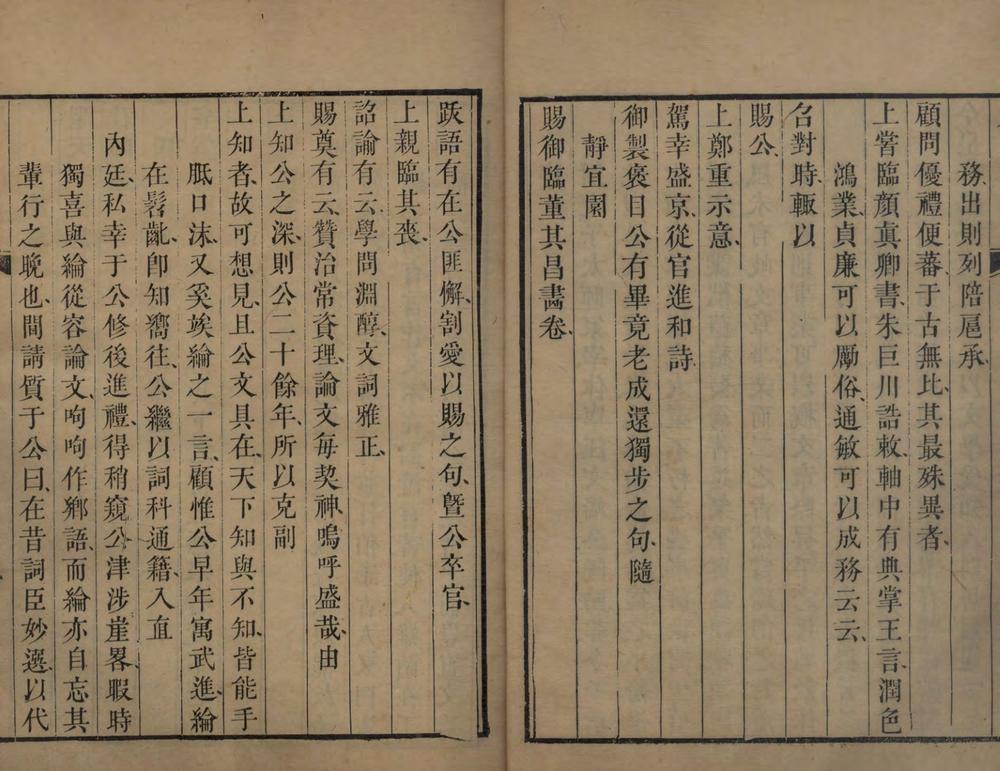 務、出則列陪扈、承
顧問、優禮便蕃、于古無比、其最殊異者、
上嘗臨顏真卿書、朱巨川誥敕、軸中有典掌王言、潤色
鴻業、貞廉可以勵俗、通敏可以成務云云、
召對時、輒以
賜公、
上鄭重示意、
駕幸盛京、從官進和詩、
御製褒目公有畢竟老成還獨步之句、隨
靜宜園
賜御臨董其昌畵卷、
跋語有在公匪懈、割愛以賜之句、曁公卒官、
上親臨其喪、
詔諭有云、學問淵醇、文詞雅正、
賜奠有云、贊治常資理、論文每契神、嗚呼盛哉、由
上知公之深、則公二十餘年、所以克副
上知者、故可想見、且公文具在、天下知與不知、皆能手
胝口沫、又奚竢綸之一言、顧惟公早年寓武進、綸
在髫齔、卽知嚮往、公繼以詞科通籍、入直
內廷、私幸于公修後進禮、得稍窺公津涉崖畧、暇時
獨喜與綸從容論文、呴呴作鄉語、而綸亦自忘其
輩行之晚也、間請質于公曰、在昔詞臣妙選、以代